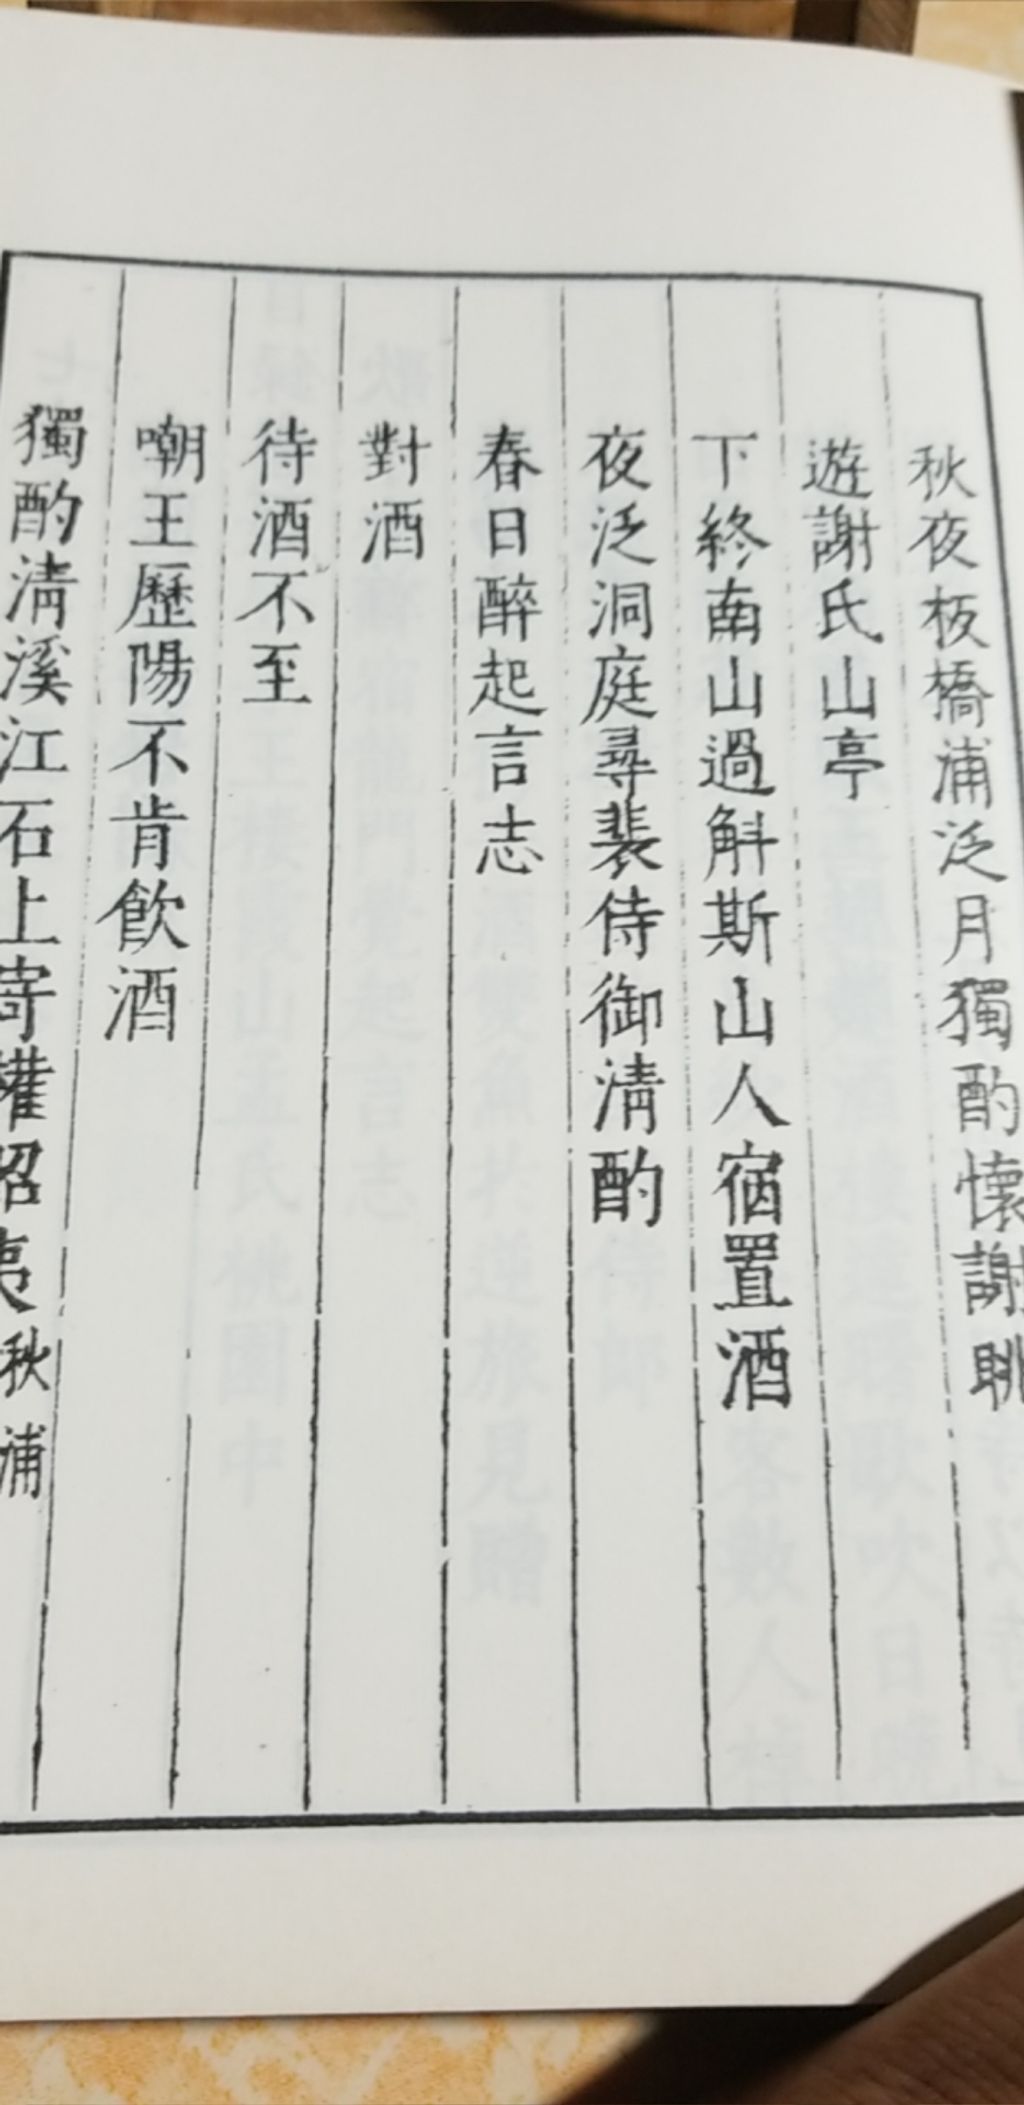 秋夜板橋浦泛月獨酌懷謝朓
遊謝氏山亭
下終南山過斛斯山人宿置酒
夜泛洞庭尋裴侍御清酌
春日醉起言志
對酒
待酒不至
嘲王歷陽不肯飲酒
獨酌清溪江石上寄權昭夷秋浦